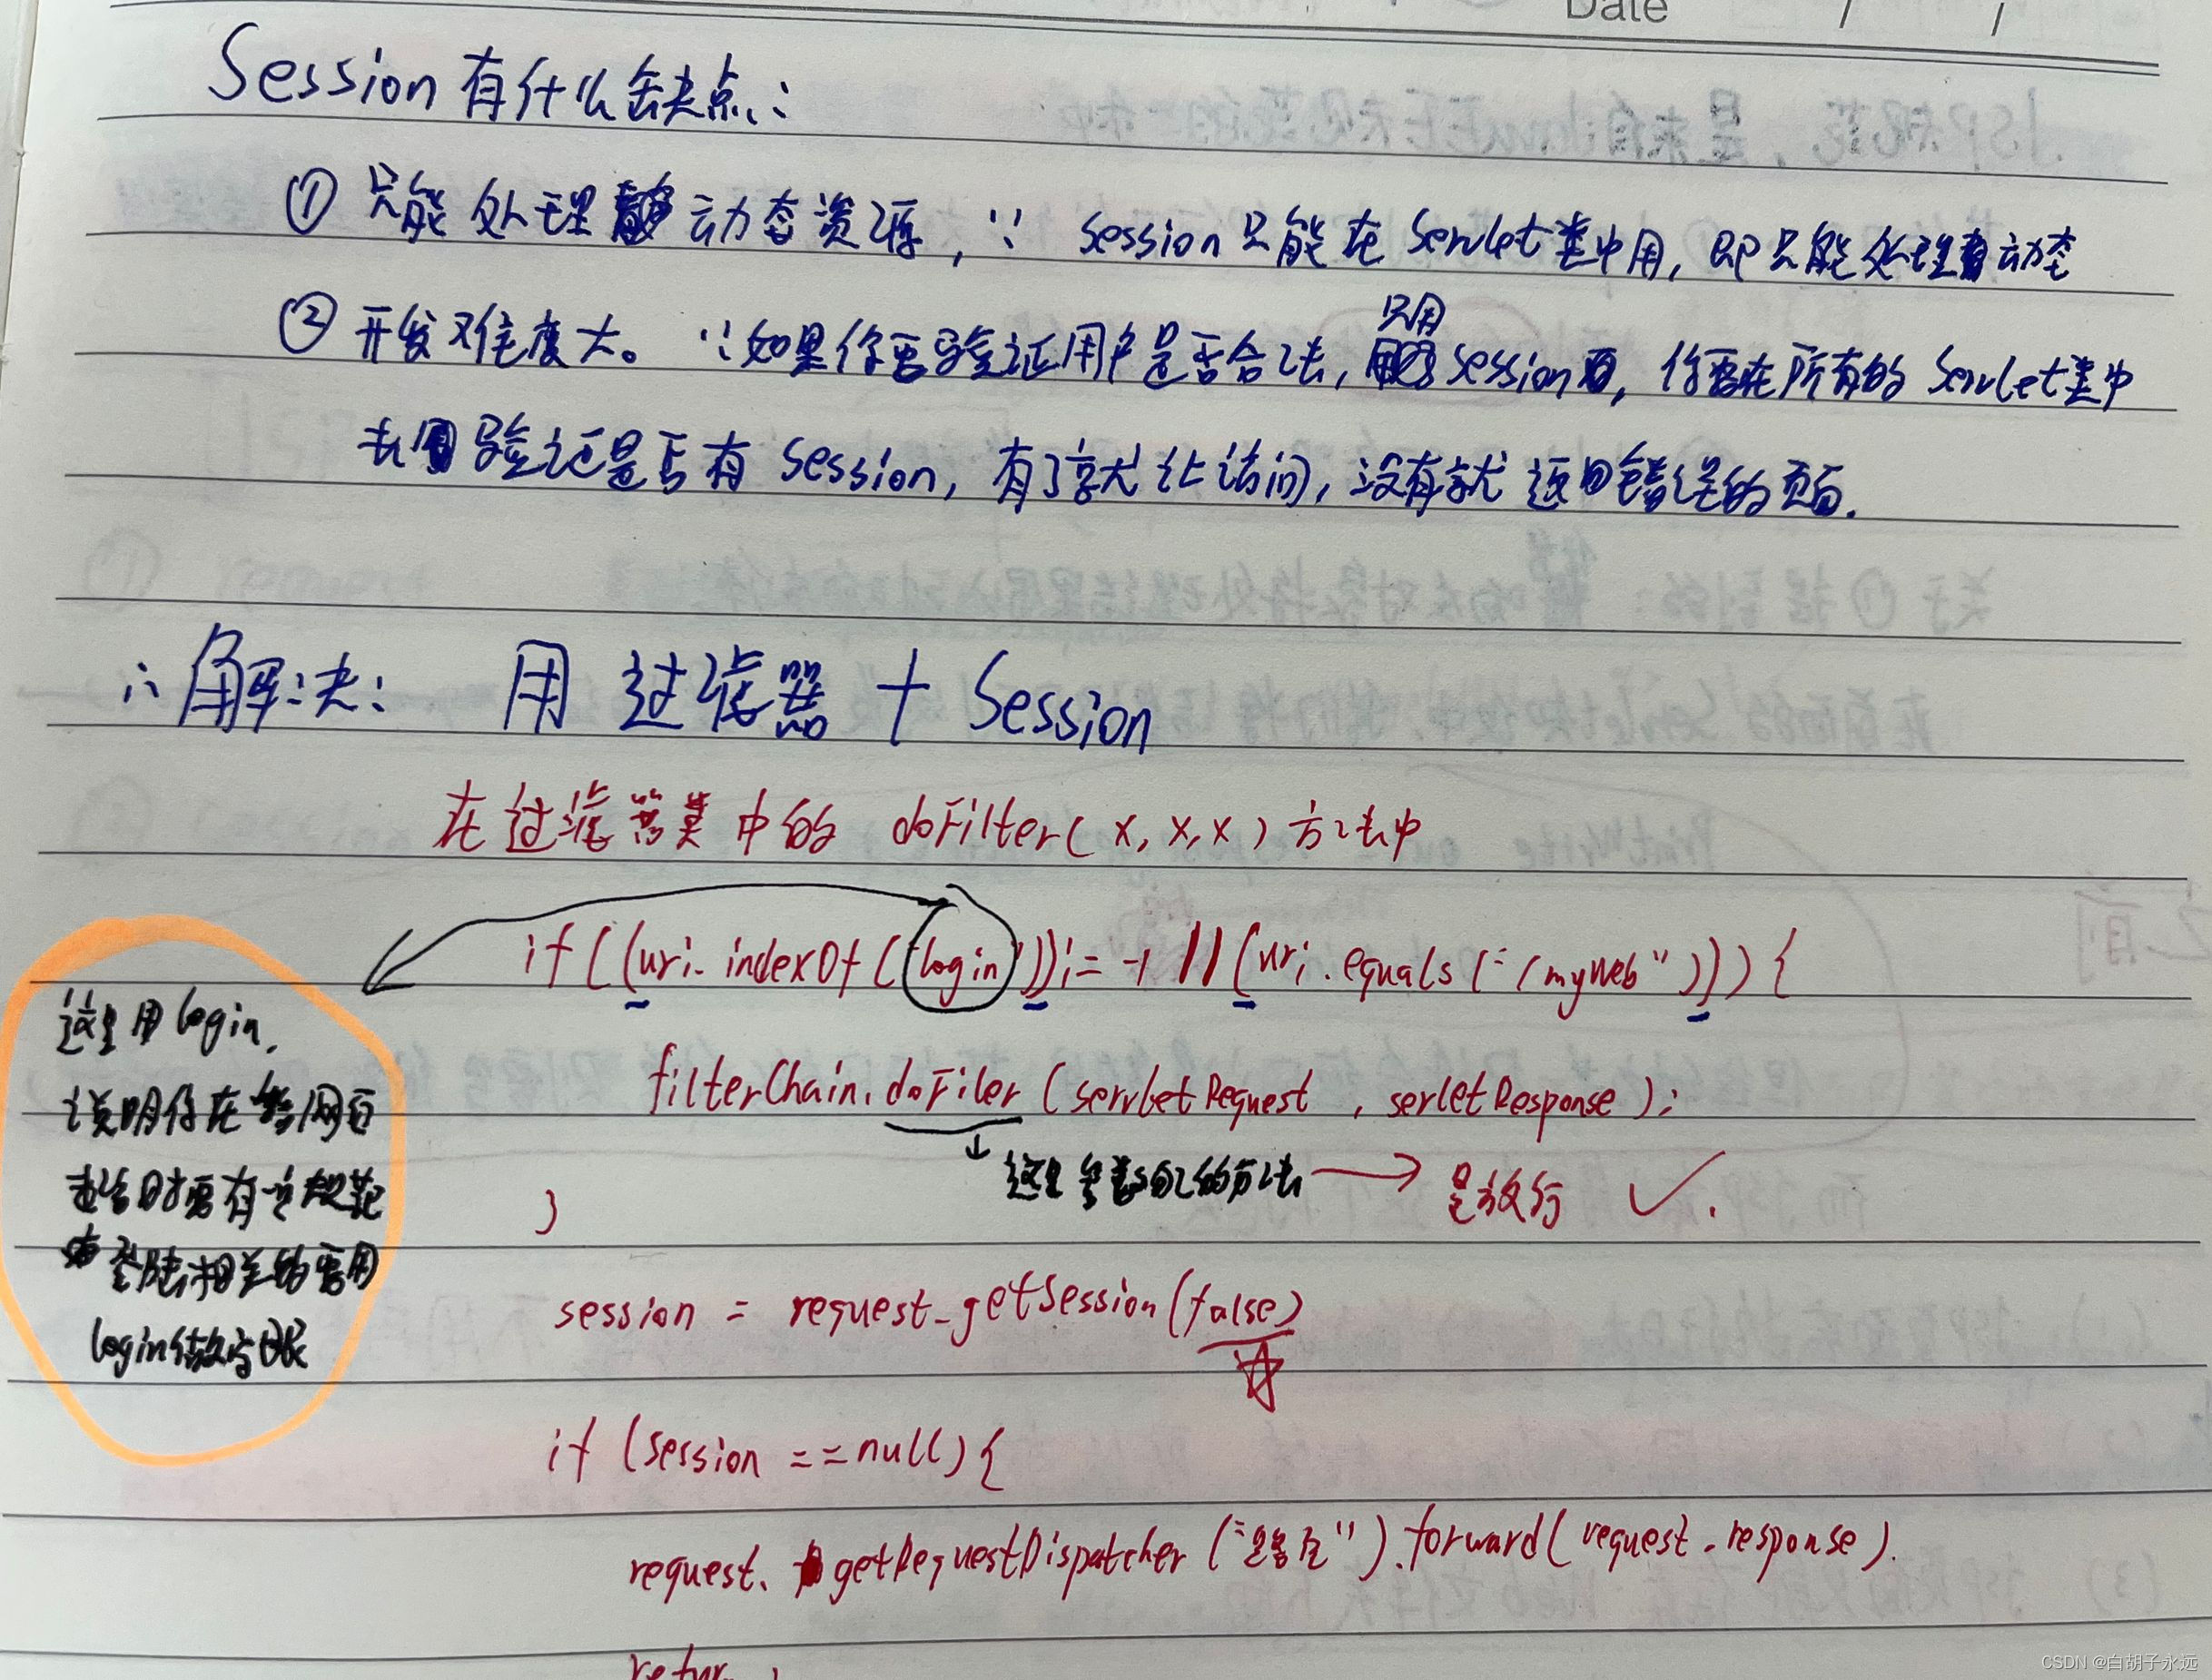 Date / /
Session有什么缺点：
① 只能处理动态资源，∵ Session只能在Servlet类中用，即只能处理动态
只用
② 开发难度大。∵如果你要验证用户是否合法，Session，你要在所有的Servlet类中
去验证是否有Session，有了就让访问，没有就返回错误的页面.
∴解决： 用 过滤器 + Session
在过滤器类中的 doFilter(x,x,x)方法中
if((uri.indexOf("login"))!= -1 || (uri.equals("/myWeb"))){
filterChain.doFiler (servletRequest , serletResponse);
这里 自己的方法 → 是放行 ✓.
}
这里用login.
说明你在 网页
起名时要有一定规范
登陆相关的要用
login
session = request.getSession(false)
☆
if (session ==null){
request. getRequestDispatcher ("路径").forward(request.response).
return ;
CSDN @白胡子永远